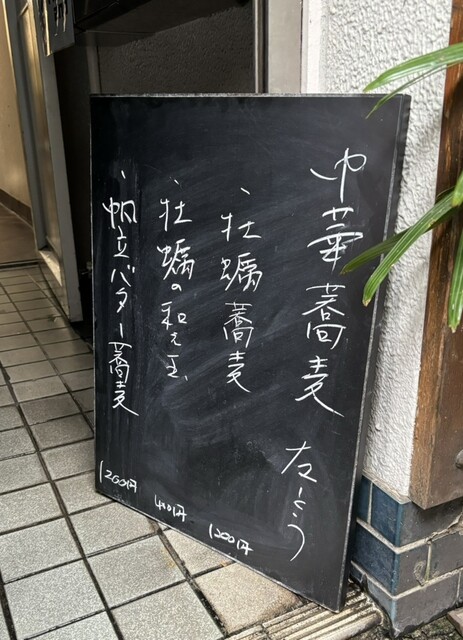 中華蕎麦 左とう
・牡蠣蕎麦 1200円
・牡蠣の和え玉 400円
・帆立バター蕎麦 1200円